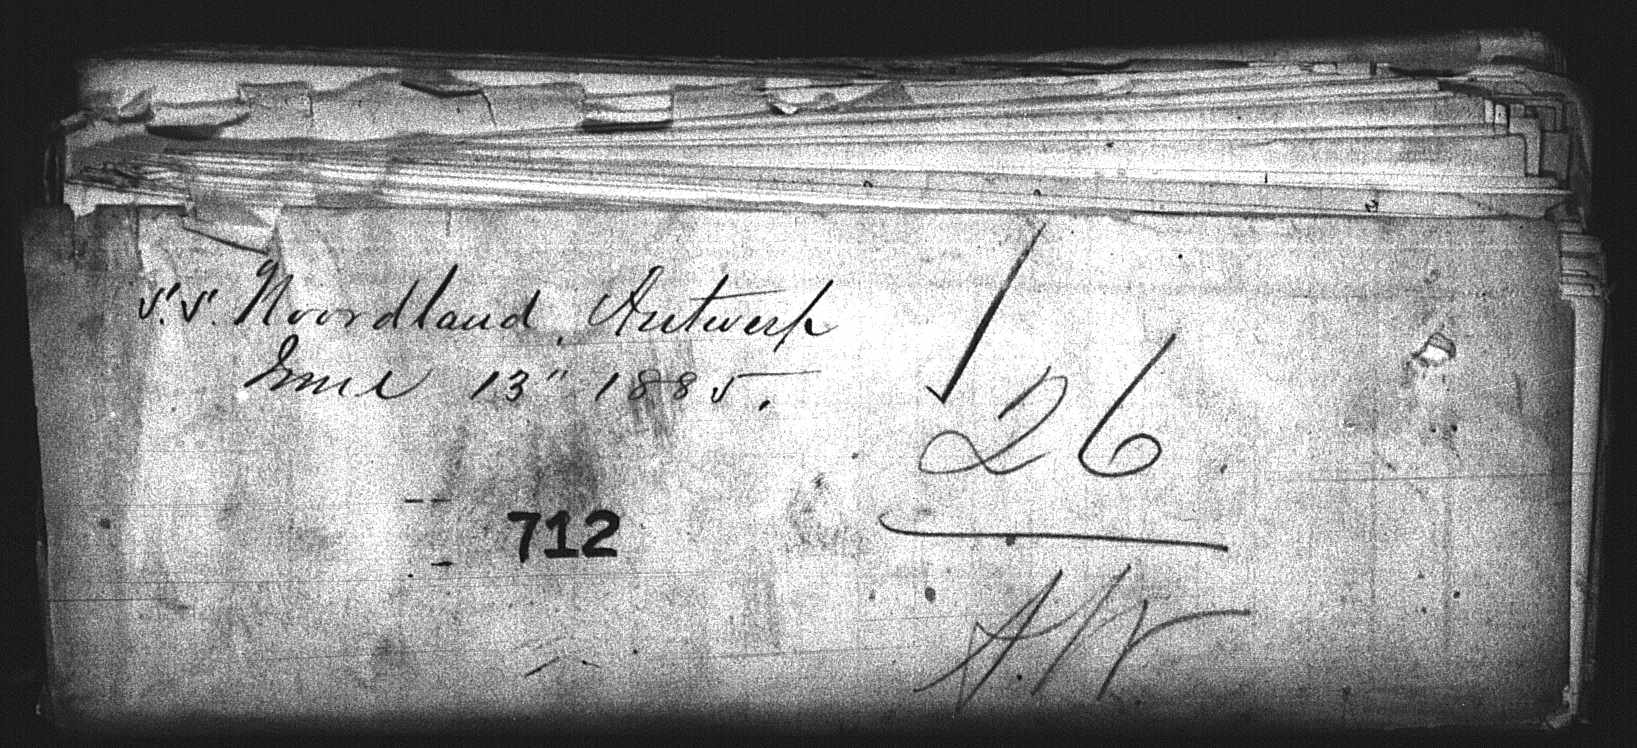 S.S. Noordland, Antwerp
June 13" 1885.
26
712